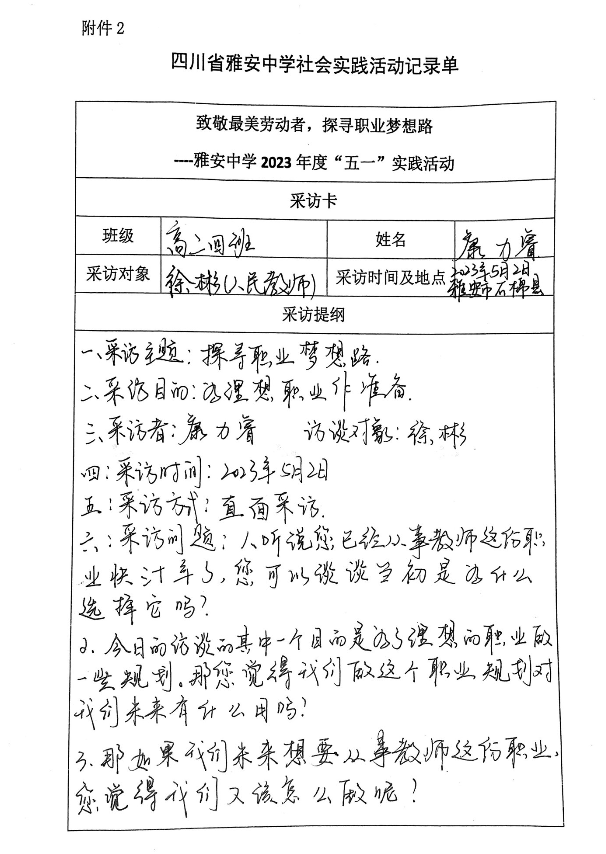 附件2
四川省雅安中学社会实践活动记录单
致敬最美劳动者，探寻职业梦想路
----雅安中学2023年度“五一”实践活动
采访卡
班级 高二四班 姓名 康力睿
采访对象 徐彬(人民教师) 采访时间及地点 2023年5月2日
雅安市石棉县
采访提纲
一、采访主题：探寻职业梦想路.
二、采访目的：为理想职业作准备.
三、采访者：康力睿 访谈对象：徐彬
四：采访时间：2023年5月2日
五：采访方式：直面采访.
六：采访问题：1、听说您已经从事教师这份职
业快汁年了，您可以谈谈当初是为什么
选择它吗?
2. 今日的访谈的其中一个目的是为了理想的职业做
一些规划。那您觉得我们做这个职业规划对
我们未来有什么用吗?
3. 那如果我们未来想要从事教师这份职业、
您觉得我们又该怎么做呢?